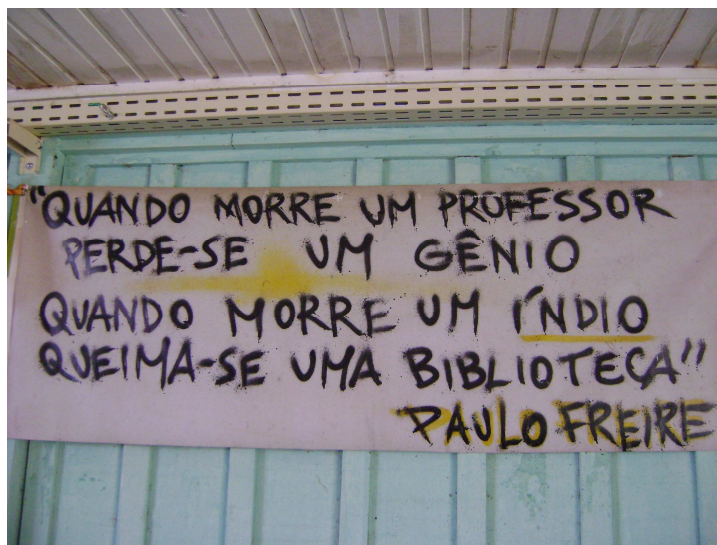 "QUANDO MORRE UM PROFESSOR
PERDE-SE UM GÊNIO
QUANDO MORRE UM ÍNDIO
QUEIMA-SE UMA BIBLIOTECA"
PAULO FREIRE